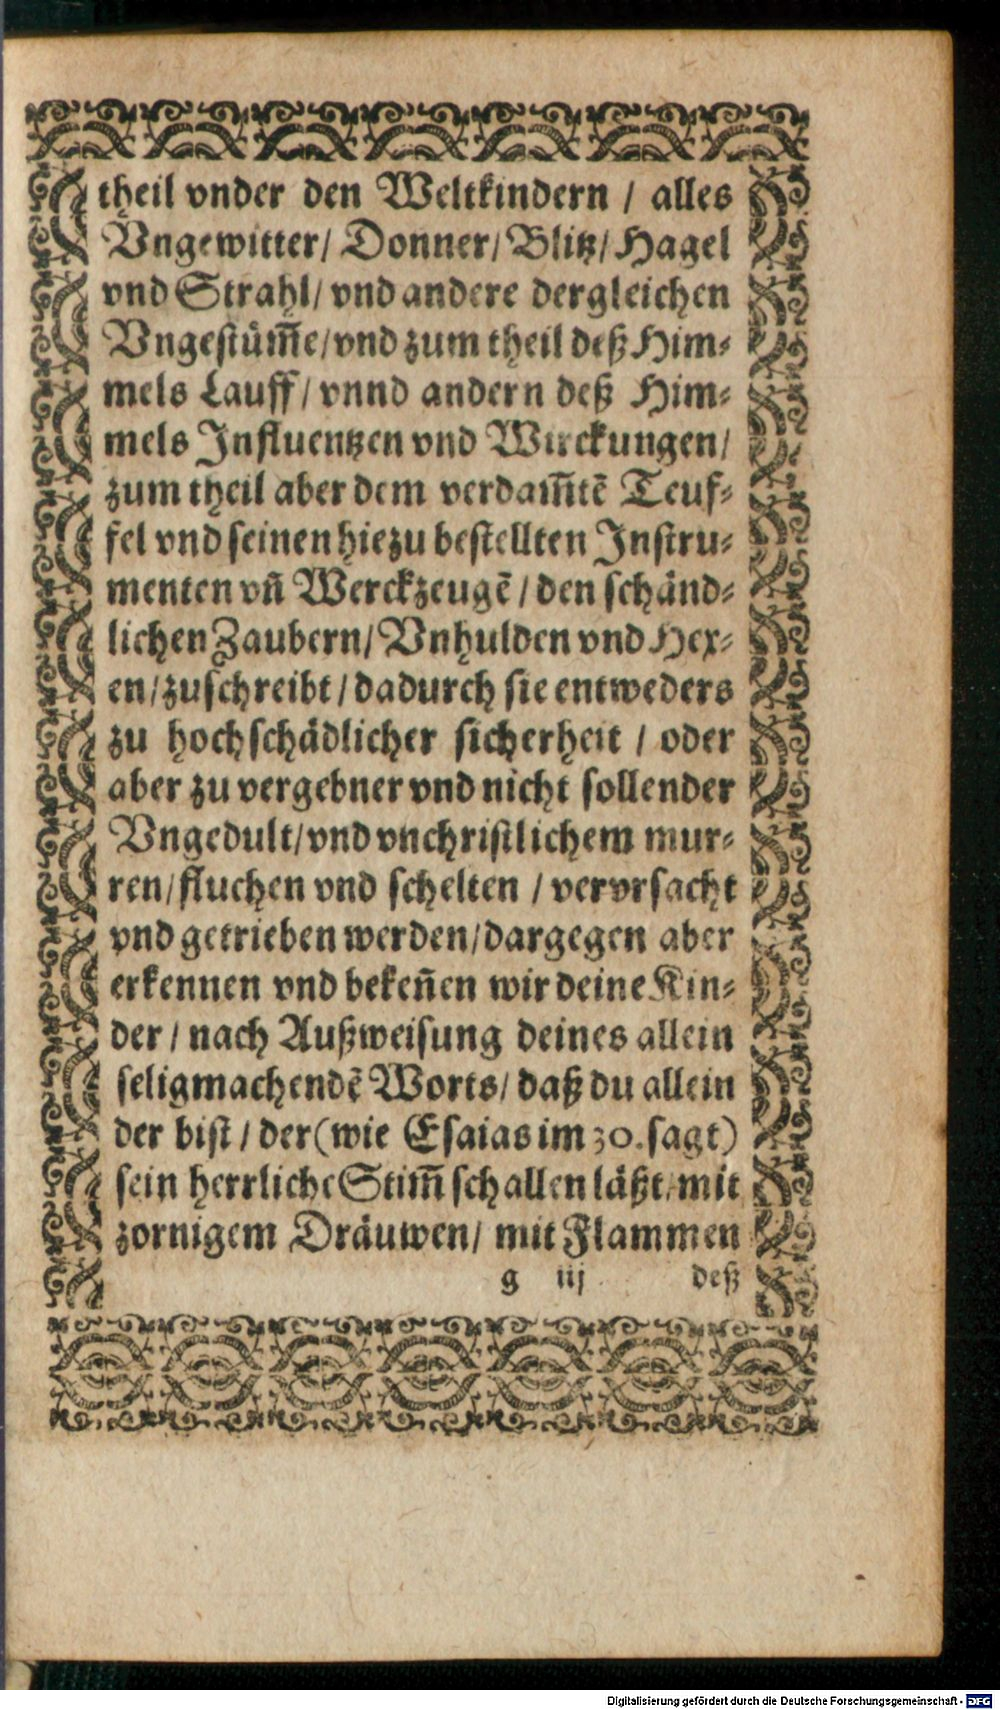 theil vnder den Weltkindern / alles
Vngewitter/ Donner/ Blitz/ Hagel
vnd Strahl/ vnd andere dergleichen
Vngestüm̃e/ vnd zum theil deß Him⸗
mels Lauff / vnnd andern deß Him⸗
mels Influentzen vnd Wirckungen/
zum theil aber dem verdam̃tẽ Teuf⸗
fel vnd seinen hiezu bestellten Instru⸗
menten vñ Werckzeugẽ / den schänd⸗
lichen Zaubern/ Vnhulden vnd Hex⸗
en/ zuschreibt / dadurch sie entweders
zu hochschädlicher sicherheit / oder
aber zu vergebner vnd nicht sollender
Vngedult/ vnd vnchristlichem mur⸗
ren/ fluchen vnd schelten / vervrsacht
vnd getrieben werden/ dargegen aber
erkennen vnd bekeñen wir deine Kin⸗
der / nach Außweisung deines allein
seligmachendẽ Worts/ daß du allein
der bist / der (wie Esaias im 30. sagt)
sein herrliche Stim̃ schallen läßt/ mit
zornigem Dräuwen/ mit Flammen
g iij deß
Digitalisierung gefördert durch die Deutsche Forschungsgemeinschaft - DFG